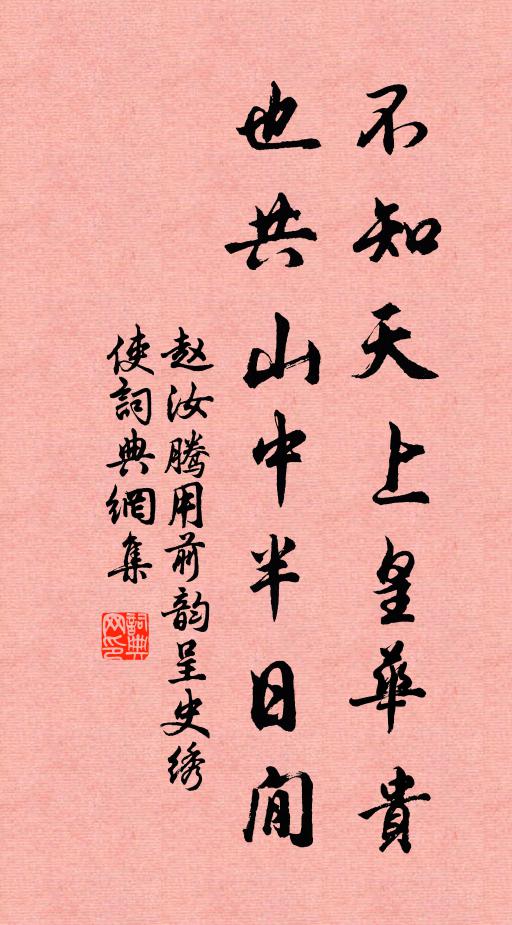 不知天上皇華貴
也共山中半日閒
赵汝腾用前韵呈史绣
使詞典網集
詞典网印